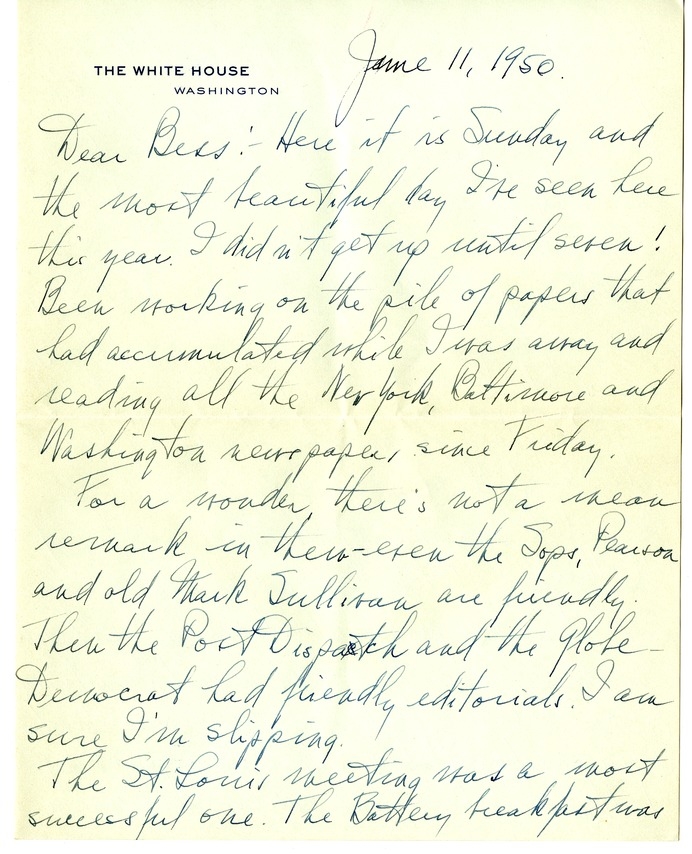 THE WHITE HOUSE
WASHINGTON
June 11, 1950.
Dear Bess:- Here it is Sunday and
the most beautiful day I've seen here
this year. I didn't get up until seven!
Been working on the pile of papers that
had accumulated while I was away and
reading all the New York, Baltimore and
Washington newspapers since Friday.
For a wonder, there's not a mean
remark in them-even the Sops, Pearson
and old Mark Sullivan are friendly.
Then the Post Dispatch and the Globe-
Democrat had friendly editorials. I am
sure I'm slipping.
The St. Louis meeting was a most
successful one. The Battery breakfast was